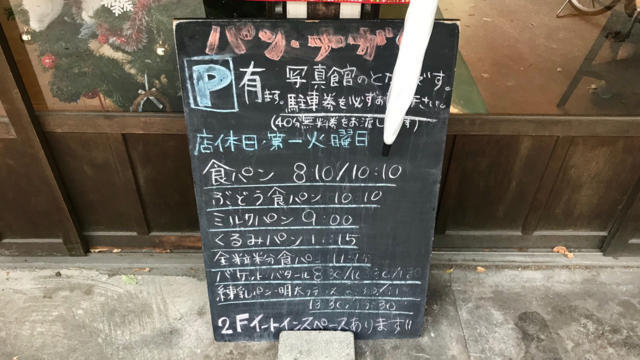 パン・ナガ
P 有 写真館のとなりです。
ます。駐車券を必ずお
(40分無料券をお渡しします)
店休日・第一火曜日
食パン 8:10/10:10
ぶどう食パン 10:10
ミルクパン 9:00
くるみパン 11:15
全粒粉食パン 11:15
バゲット・バタール 8:30/
練乳パン・明太
13:30/
2Fイートインスペースあります!!